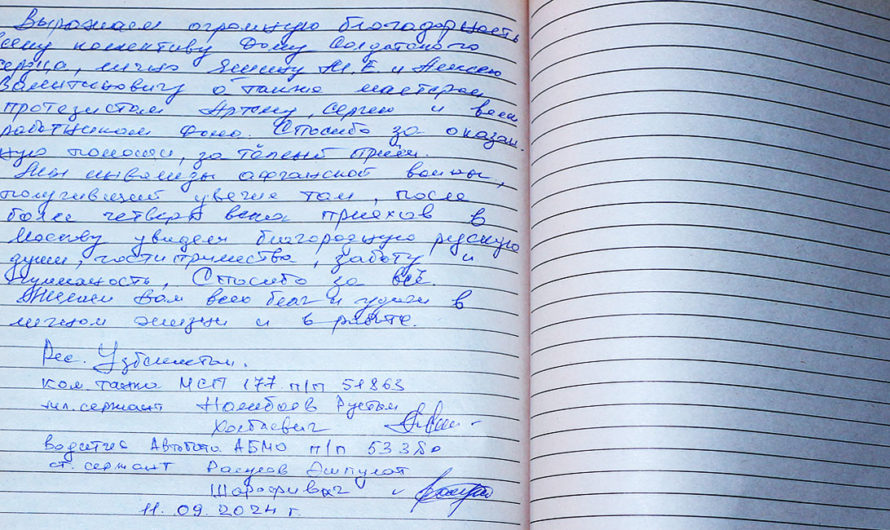 Выражаем огромную благодарность
всему коллективу Дому Солдатского
сердца, лично Яшину М. Е. и Алексею
Валентиновичу а также мастерам
протезистам Артему, Сергею и всем
работникам дома. Спасибо за оказан-
ную помощь, за тёплый приём.
Мы инвалиды афганской войны,
получивший увечие там, после
более четверти века приехав в
Москву увидели благородную русскую
душу, гостиприимства, заботу и
гуманость, Спасибо за всё.
Желаем Вам всего благ и удачи в
личном жизни и в работе.
Рес. Узбекистан.
ком. танка МСП 177 п/п 51863
мл. сержант Рустам
Водитель Автобата АБМО п/п 5338
ст. сержант Эшпулат
11.09.2024 г.